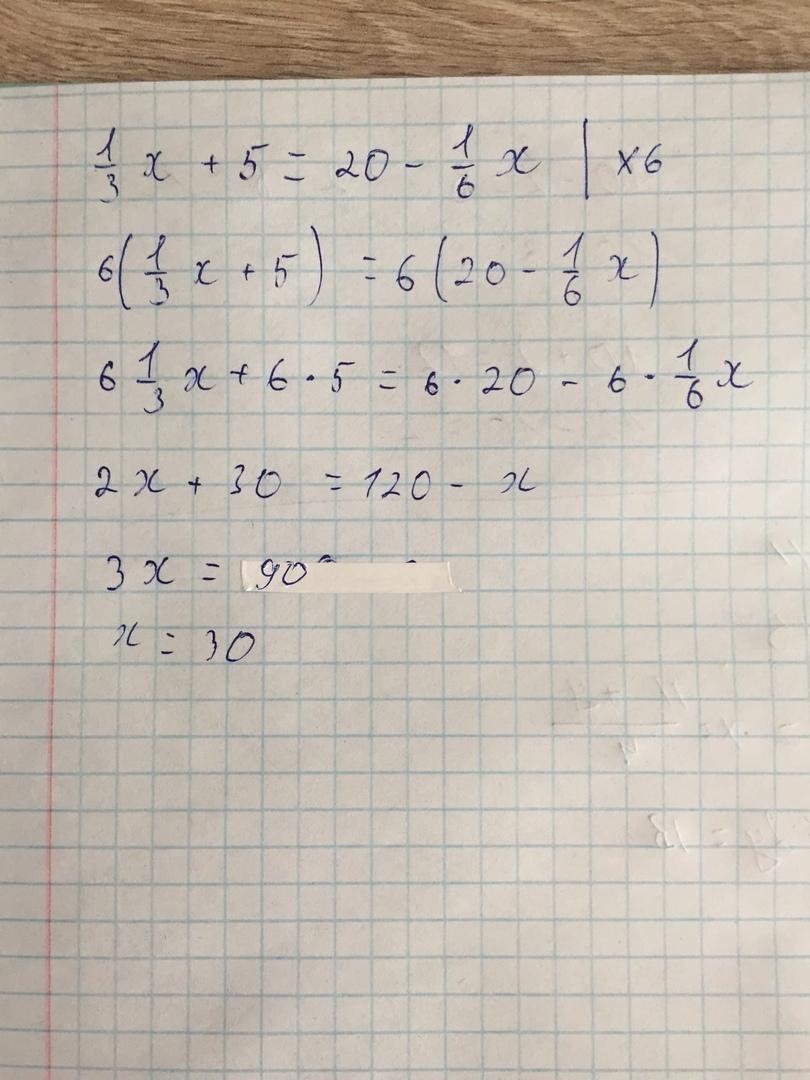 1/3 x + 5 = 20 - 1/6 x | ×6
6(1/3 x + 5) = 6(20 - 1/6 x)
6 1/3 x + 6 · 5 = 6 · 20 - 6 · 1/6 x
2x + 30 = 120 - x
3x = 90
x = 30